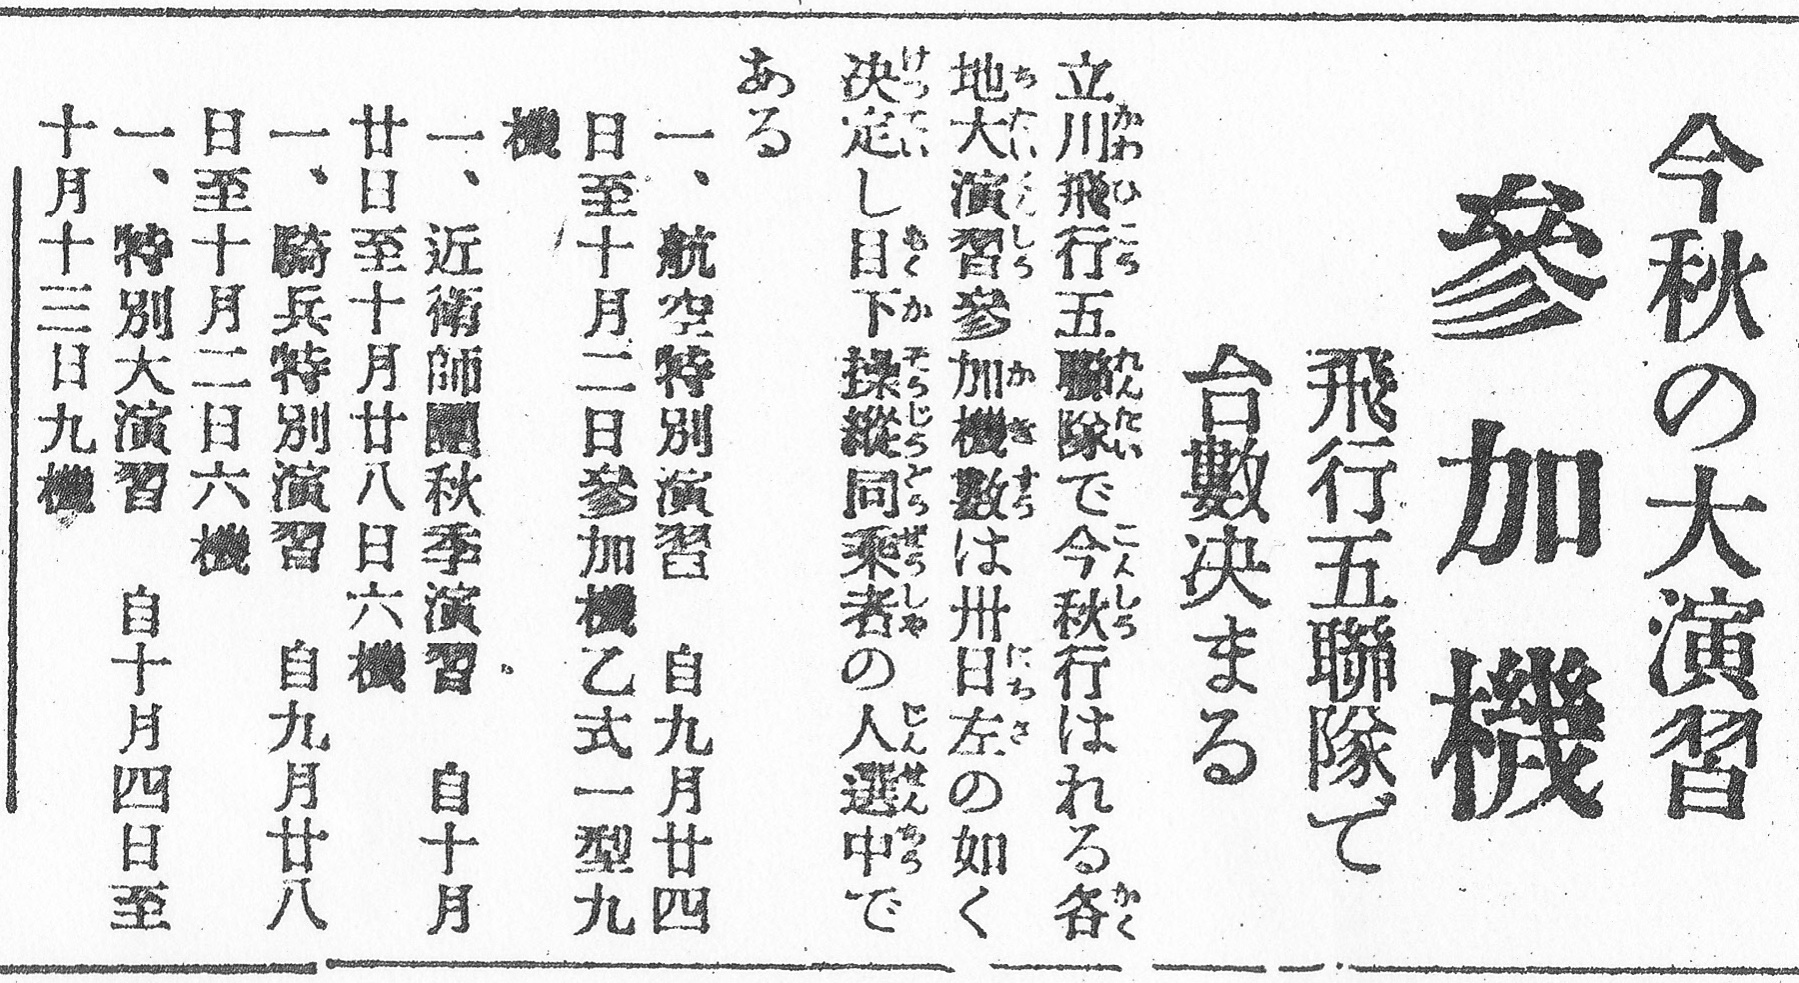 今秋の大演習
參加機
飛行五聯隊で
台數決まる
立川飛行五聯隊で今秋行はれる各
地大演習參加機數は卅日左の如く
決定し目下操縱同乘者の人選中で
ある
一、航空特別演習　自九月廿四
日至十月二日參加機乙式一型九
機
一、近衛師團秋季演習　自十月
廿日至十月廿八日六機
一、騎兵特別演習　自九月廿八
日至十月二日六機
一、特別大演習　自十月四日至
十月十三日九機